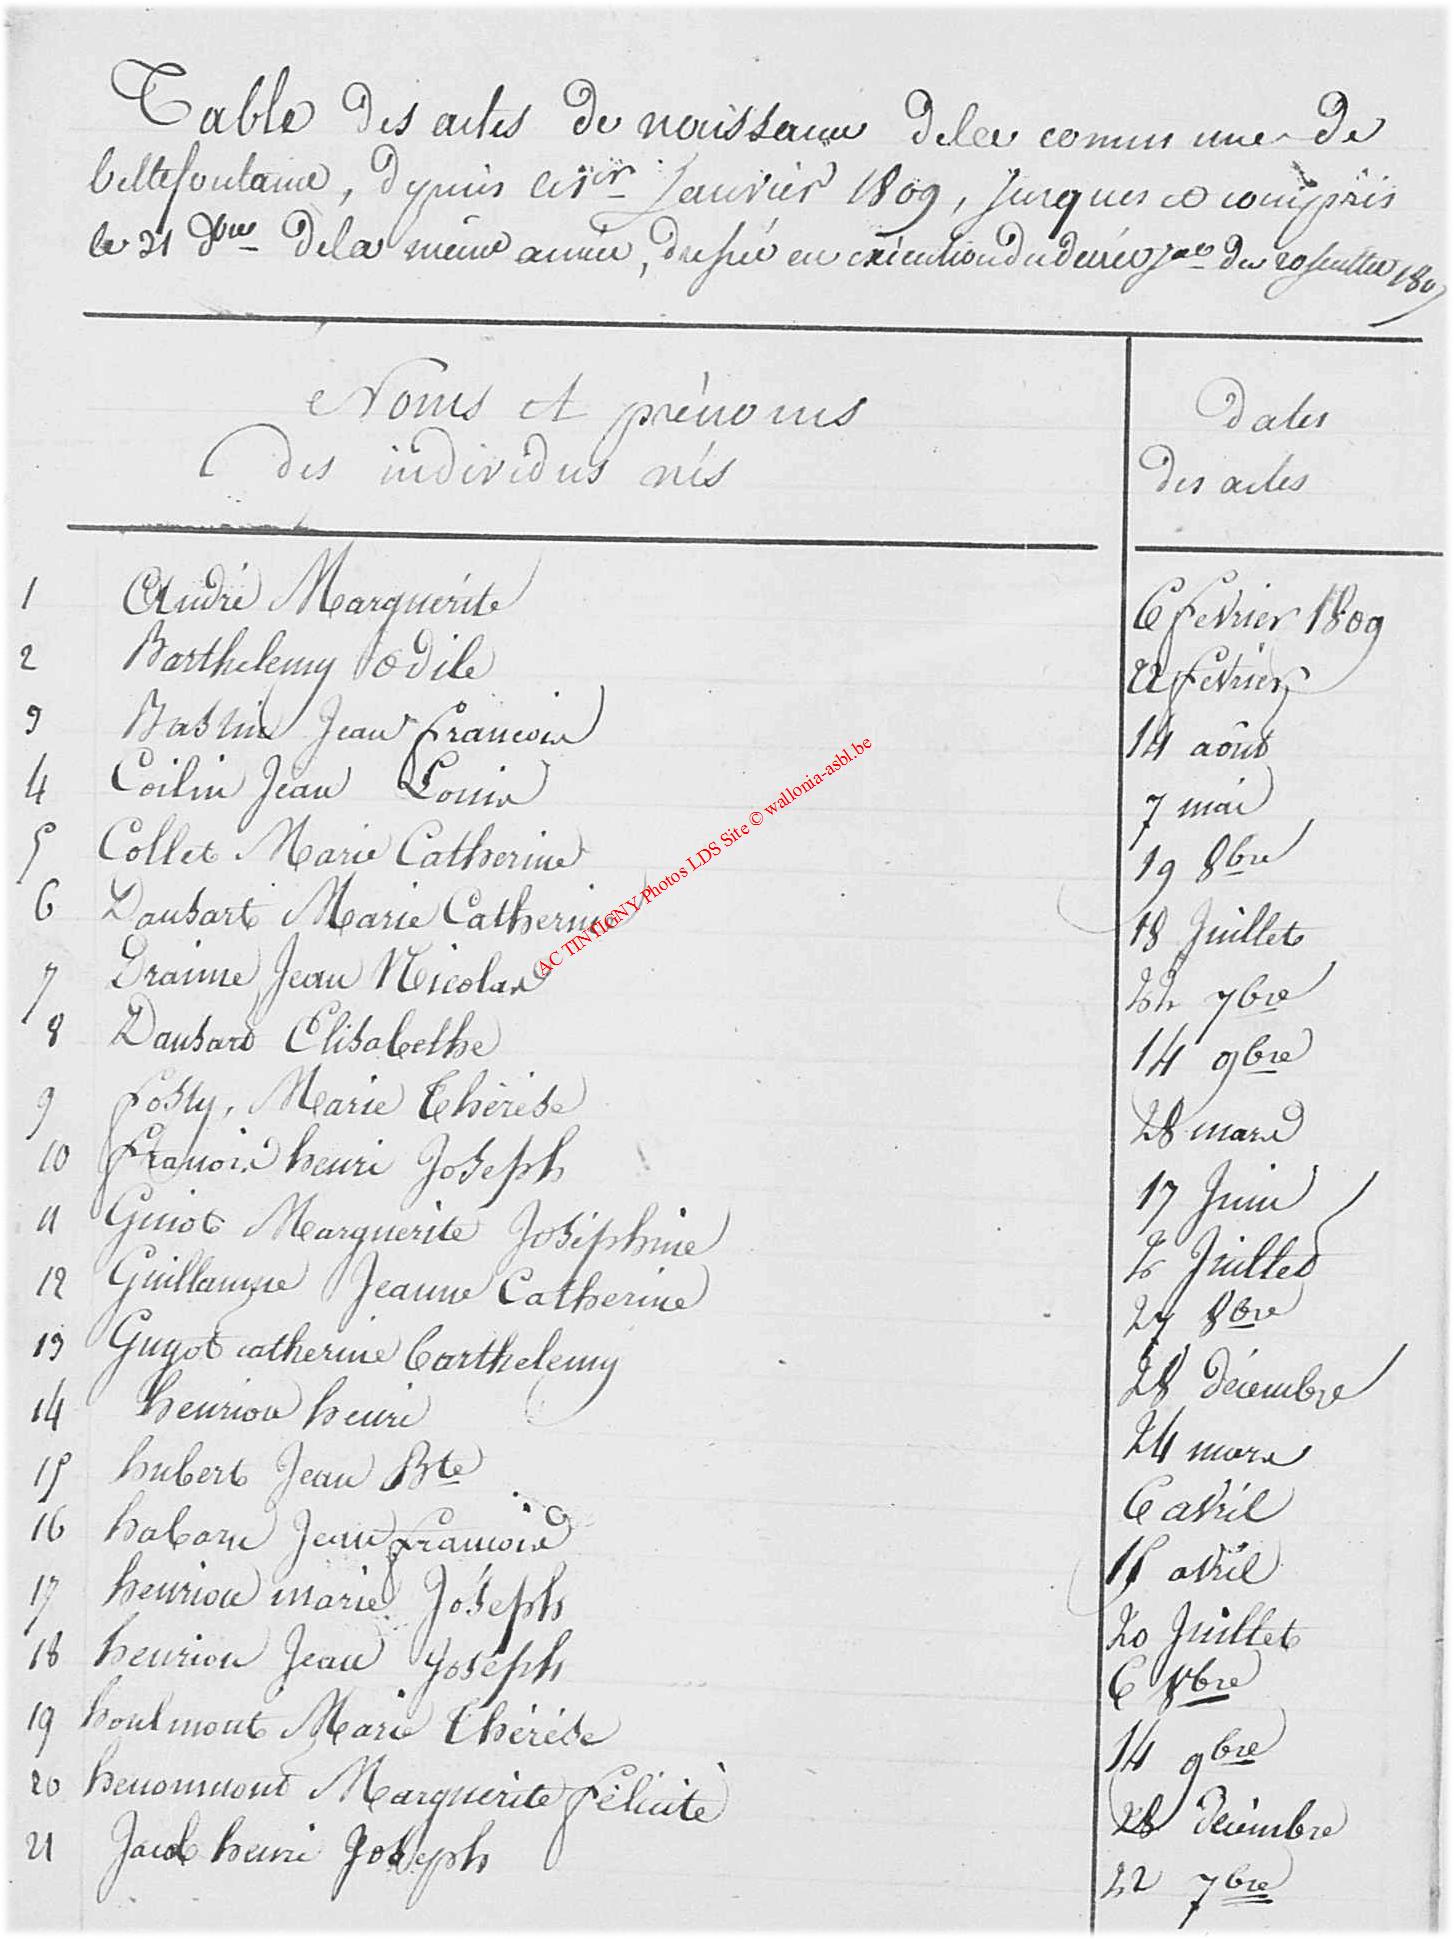 Table des actes de naissance de la commune de
bellefontaine, depuis le 1er Janvier 1809, Jusques et compris
le 31 Xbre de la même année, dressée en exécution du decret du 20 Juillet 1807
Noms et prénoms
des individus nés
dates
des actes
1 André Marguérite 6 fevrier 1809
2 Barthelemy Odile 22 fevrier
3 Bastin Jean François 14 août
4 Coilin Jean Louis 7 mai
5 Collet Marie Catherine 19 8bre
6 Dausart Marie Catherine 18 Juillet
7 Draime Jean Nicolas 7bre
8 Dausart Elisabethe 14 9bre
9 fosty, Marie thérése 28 mars
10 francois henri Joseph 17 Juin
11 Guiot Marguerite Joséphine Juillet
12 Guillaume Jeanne Catherine 27 8bre
13 Guyot catherine barthelemy 28 décembre
14 henrion henri 24 mars
15 hubert Jean Bte 6 avril
16 habaru Jean francois 15 avril
17 henrion marie Joseph 20 Juillet
18 henrion Jean Joseph 6 8bre
19 houlmont Marie thérése 14 9bre
20 henonmont Marguérite félicité 28 décembre
21 Jacob henri Joseph 22 7bre
AC TINTIGNY Photos LDS Site © wallonia-asbl.be